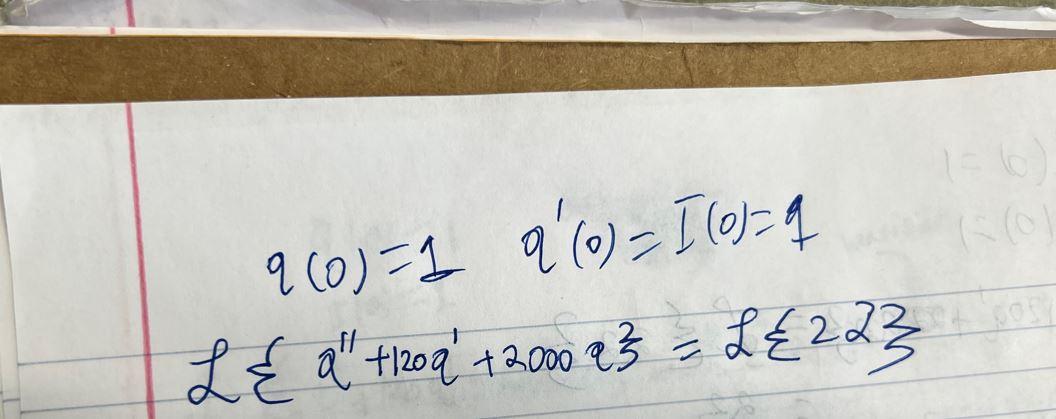 q(0)=1 q'(0)=I(0)=1
ℒ{q''+120q'+2000q}=ℒ{22}